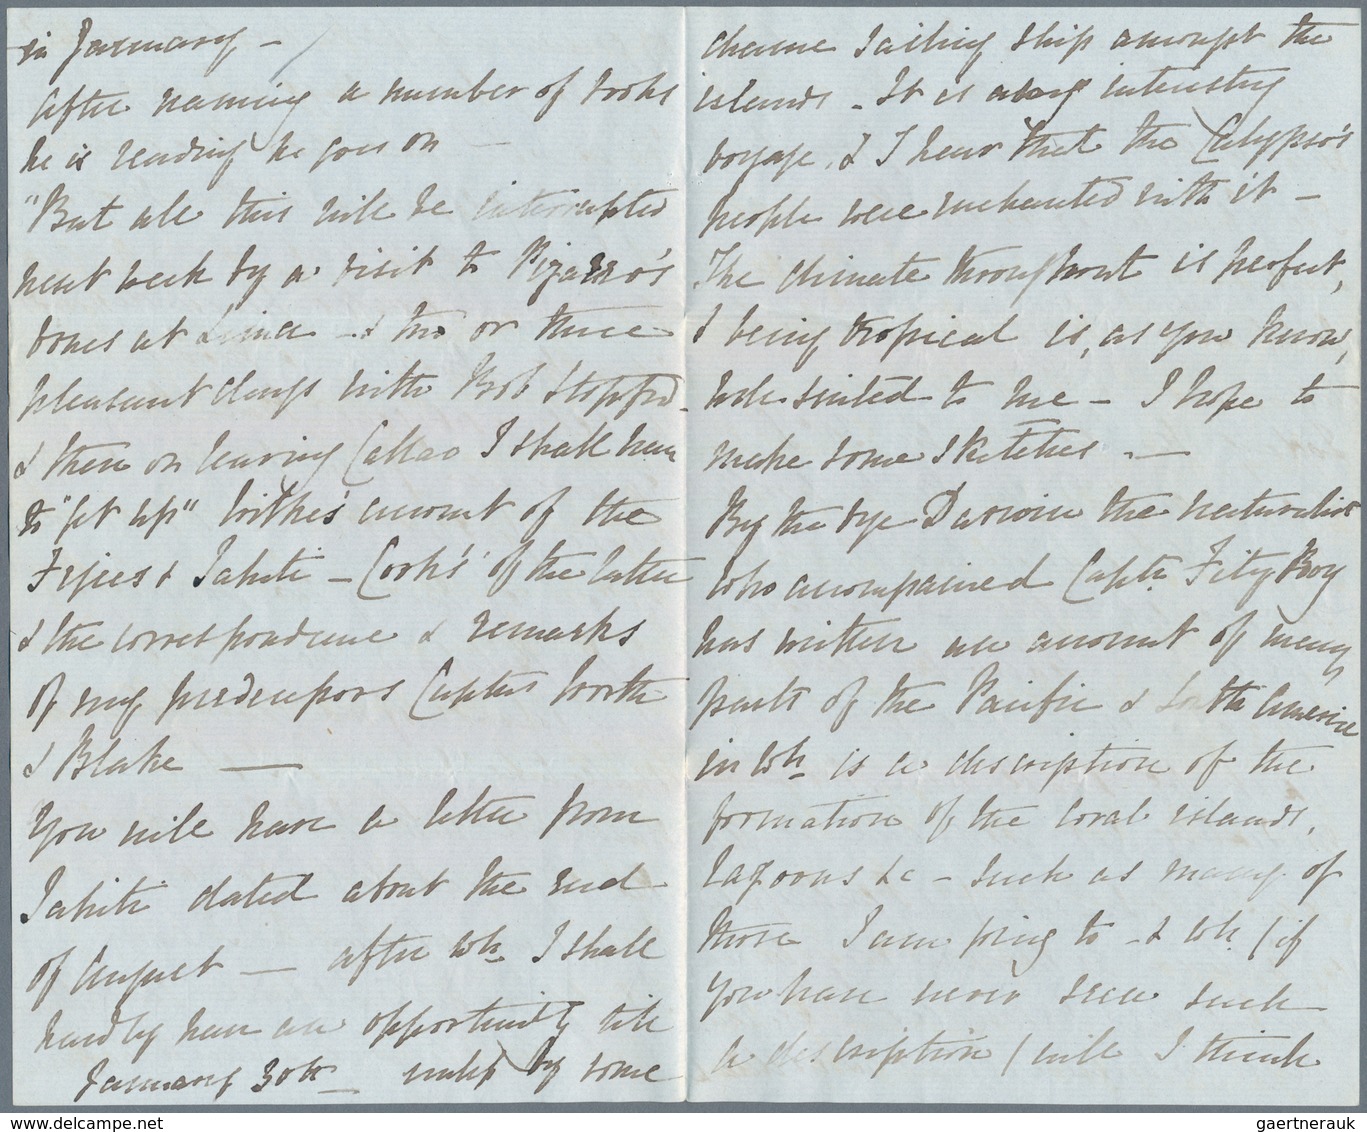 in January -
After naming a number of books
he is reading he goes on -
"But all this will be interrupted
next week by a visit to Pizarro's
bones at Lima - & two or three
pleasant days with Bob Stopford -
& then on leaving Callao I shall have
to "get up" Wilkes's account of the
Fejees & Tahiti - Cook's of the latter
& the correspondence & remarks
of my predecessors Captns Worth
& Blake —
You will have a letter from
Tahiti dated about the end
of August — after wh. I shall
hardly have an opportunity till
January 30th - unless by some
chance sailing ship amongst the
islands - It is a very interesting
voyage, & I hear that the Calypso's
people were enchanted with it -
The climate throughout is perfect,
& being tropical is, as you know,
well suited to me - I hope to
make some sketches . —
By the bye Darwin the naturalist
who accompanied Captn. Fitz Roy
has written an account of many
parts of the Pacific & South America
in wh. is a description of the
formation of the Coral islands,
Lagoons &c - such as many of
those I am going to - & wh. (if
you have never seen such
a description) will I think
gaertnerauk